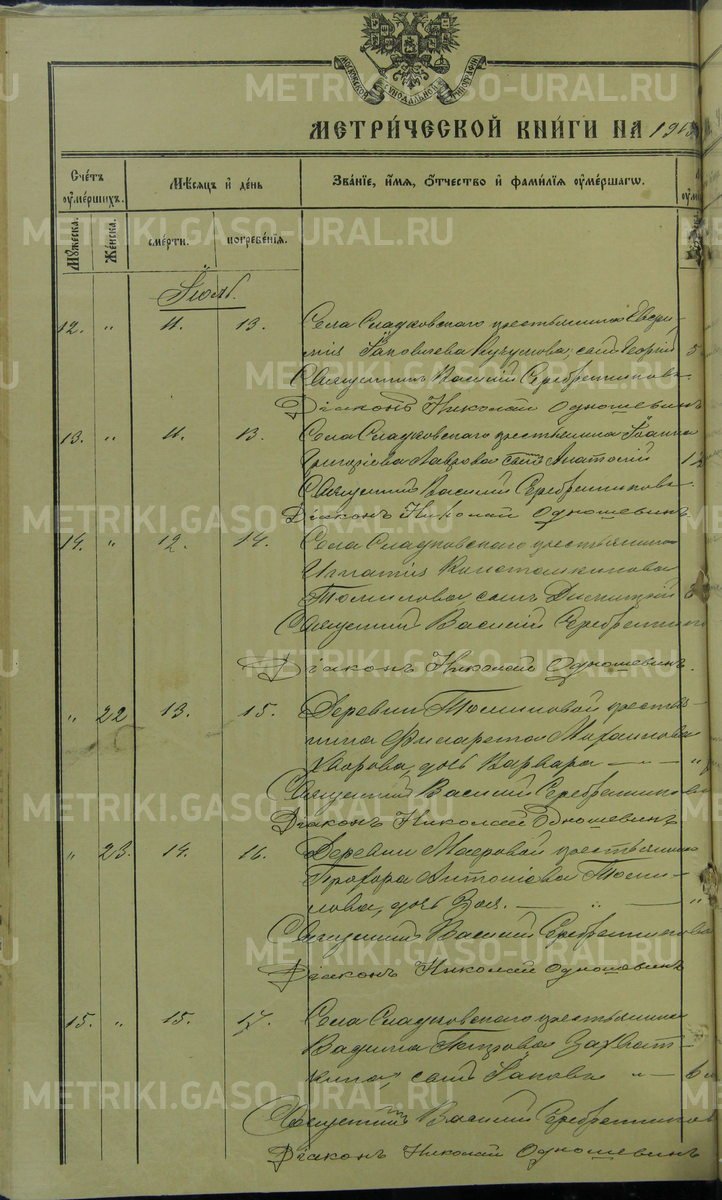 МОСКОВСКОЙ СѴНОДАЛЬНОЙ ТИПОГРАФІИ
МЕТРИ́ЧЕСКОЙ КНИ́ГИ НА 19
Счётъ ᲂу҆ме́ршихъ. Мѣ́сяцъ и҆ де́нь Зва́нїе, и҆́мя, ѻ҆́тчество и҆ фами́лїѧ ᲂу҆ме́ршагѡ.
Мꙋ́жеска. Же́нска. сме́рти. погребе́нїѧ.
Іюль.
12. " 11. 13. Села Сладковскаго крестьянина Евфи-
мія Іаковлева Кугунова, сынъ Георгій 5
Священникъ Василій Серебренниковъ.
Діаконъ Николай Одношевинъ
13. " 11. 13. Села Сладковскаго крестьянина Іоанна
Григоріева Лаврова сынъ Анатолій 12
Священникъ Василій Серебренниковъ.
Діаконъ Николай Одношевинъ
14. " 12. 14. Села Сладковскаго крестьянина
Игнатія Константинова
Томилова сынъ Димитрій 3
Священникъ Василій Серебренниковъ
Діаконъ Николай Одношевинъ.
" 22 13. 15. Деревни Томиловой крестья-
нина Филарета Михаилова
Уварова, дочь Варвара — " — "
Священникъ Василій Серебренниковъ
Діаконъ Николай Одношевинъ
" 23. 14. 16. Деревни Макаровой крестьянина
Прохора Антоніева Томи-
лова, дочь Зоя. — " — "
Священникъ Василій Серебренниковъ
Діаконъ Николай Одношевинъ
15. " 15. 17. Села Сладковскаго крестьянина
Вадима Петрова Захват-
кина, сынъ Іаковъ " — 6
Священникъ Василій Серебренниковъ
Діаконъ Николай Одношевинъ
METRIKI.GASO-URAL.RU